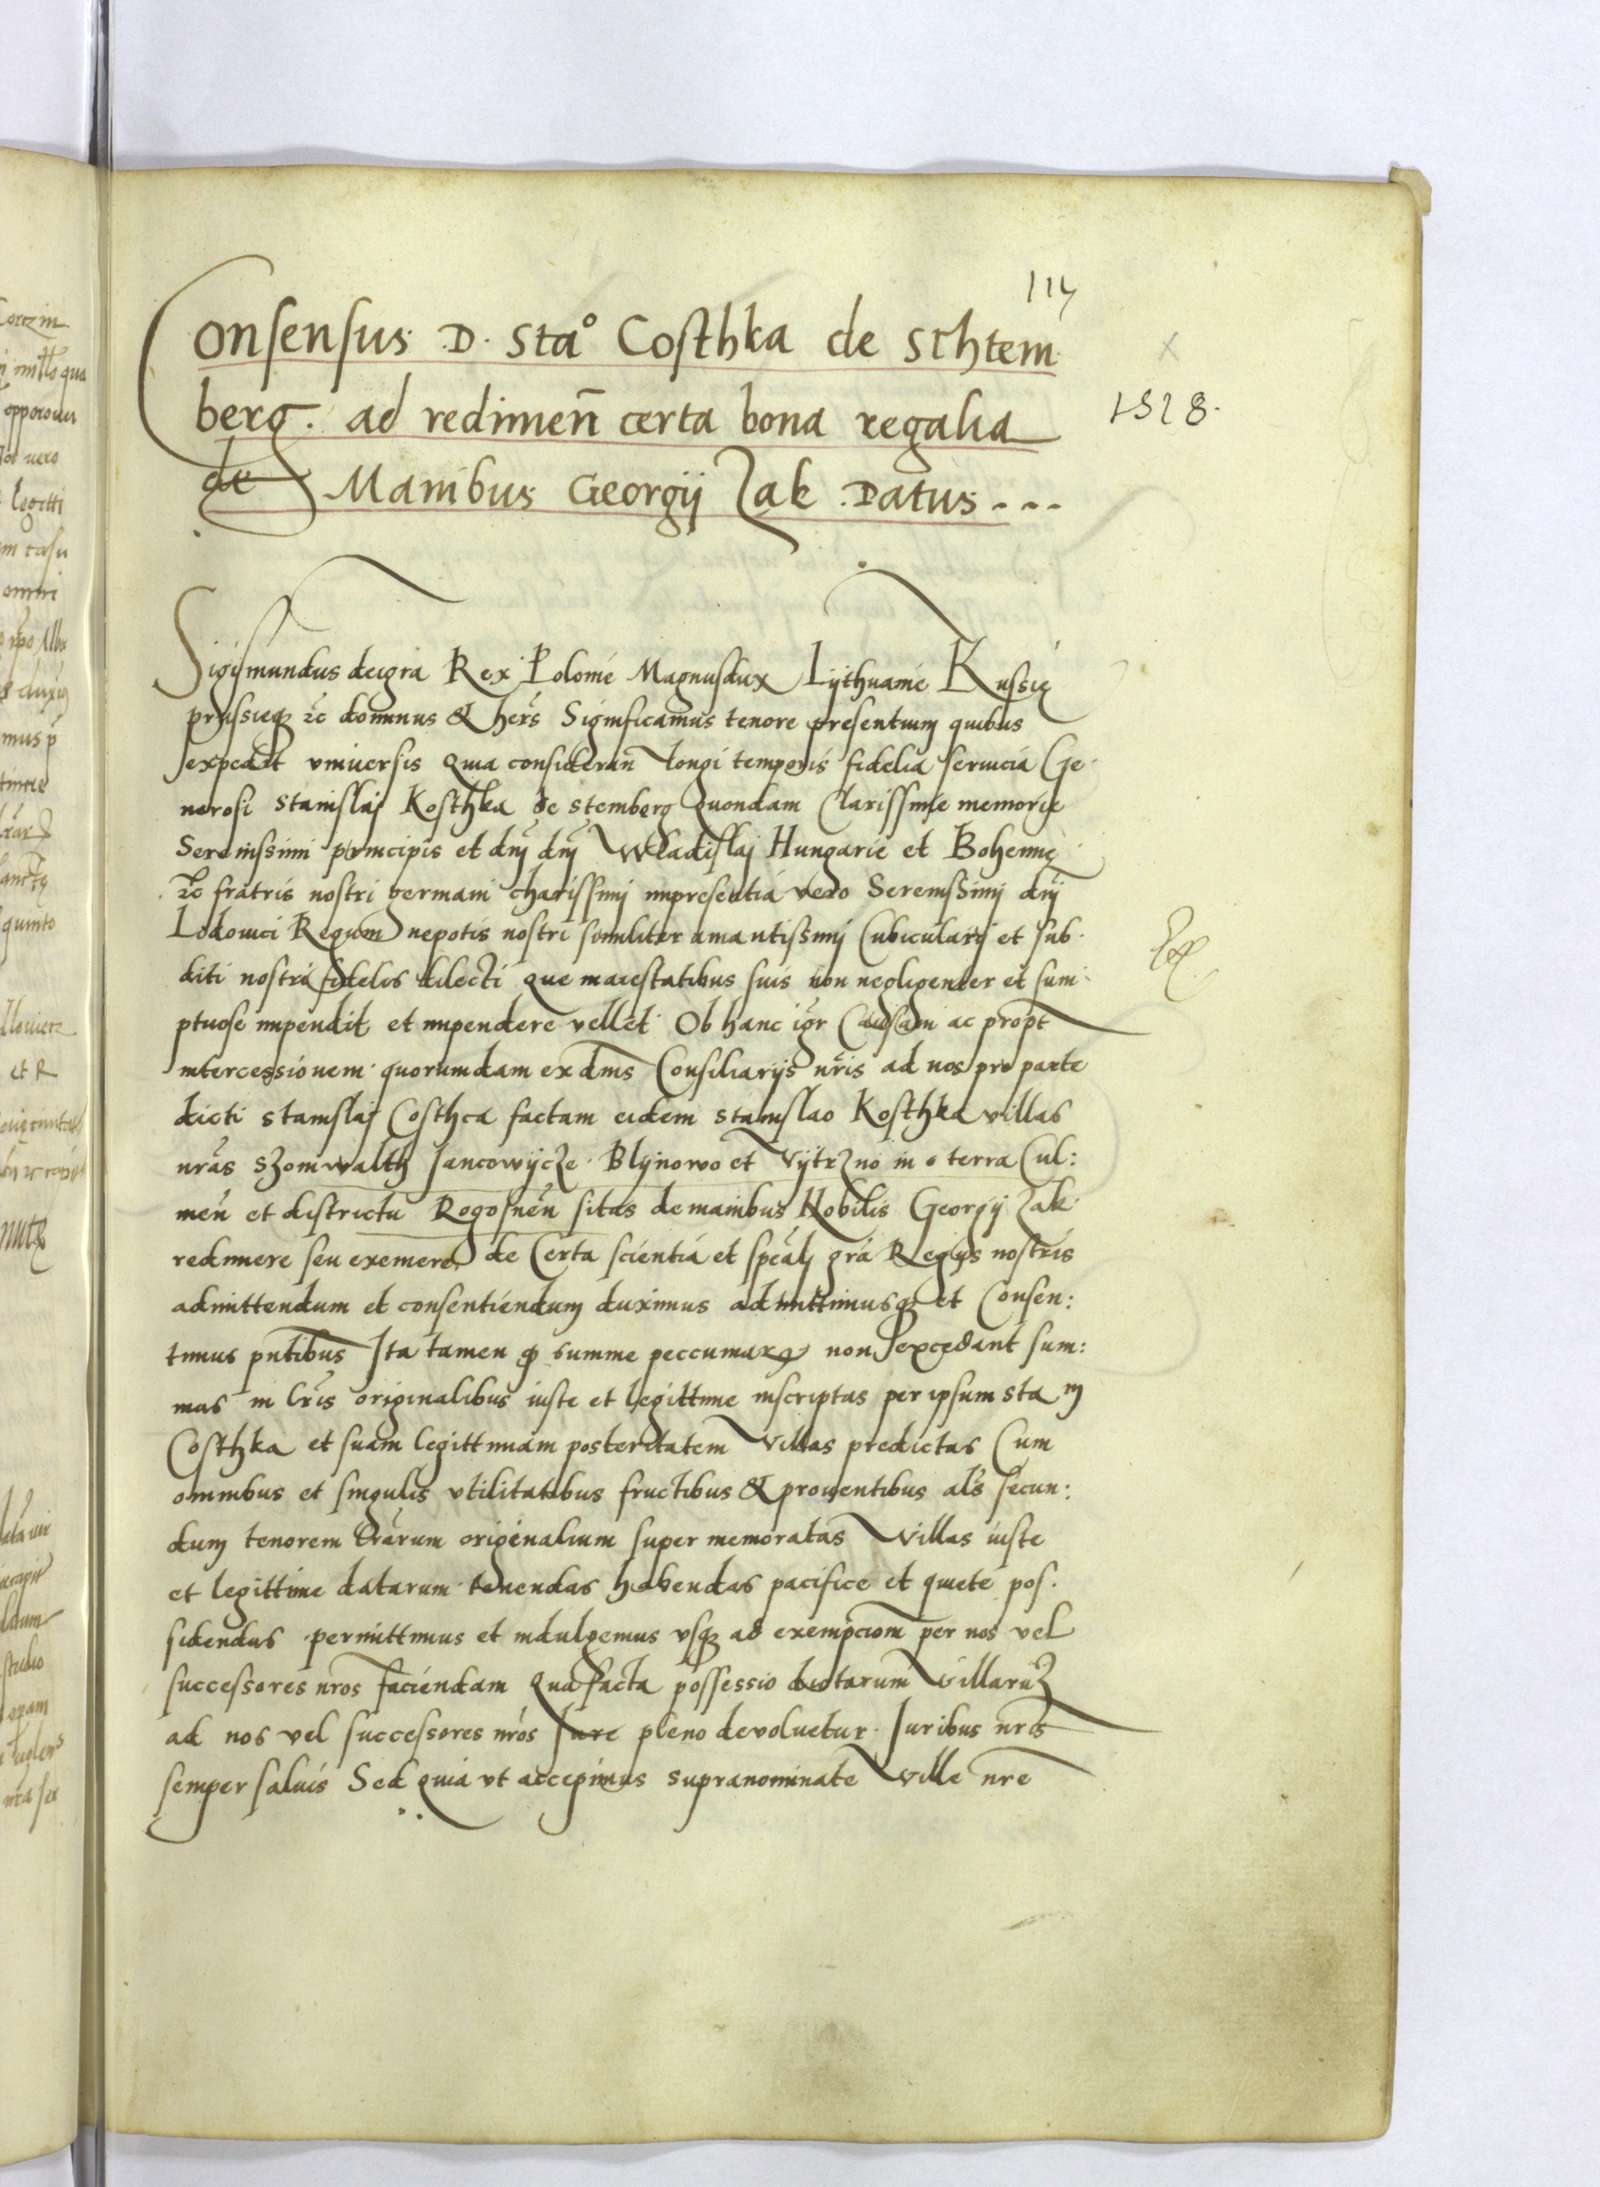 114
Consensus D. Sta° Costhka de Schtem
berg. ad redimeñ certa bona regalia
de Manibus Georgij Zak Datus - - -
1528.
Sigismundus dei gra Rex Polonie Magnus dux Lijthuanie Russie
prussieq3 zc dominus & heres Significamus tenore presentium quibus
expedit vniuersis Quia consideran longi temporis fidelia seruicia Ge
nerosi Stanislaj Kosthka de stemberg quondam Clarissimie memorie
Serenissimi principis et dnj dnj Wladislaj Hungarie et Bohemie
zc fratris nostri germani charissimj inpresentia vero Serenissimj dnj
Lodouici Regum nepotis nostri similiter amantissimj Cubicularij et sub
diti nostri fidelis dilecti que maiestatibus suis non negligenter et sum
ptuose inpendit et inpendere vellet Ob hanc igr Causam ac propt
intercessionem quorumdam ex dnis Consiliarijs nris ad nos pro parte
dicti stanislaj Costhca factam eidem stanislao Kosthka villas
nras szomwalth Jancowijcze Blijnowo et Vijtrzno in terra Cul:
meñ et districtu Rogosneñ sitas de manibus Nobilis Georgij Zak
redimere seu exemere de Certa scientia et speâlj gra Regijs nostris
admittendum et consentiendum duximus admittimusq3 et Consen:
timus pntibus Ita tamen q summe peccuniarum non excedant sum:
mas in lris originalibus iuste et legittime inscriptas per ipsum sta m
Costhka et suam legittimam posteritatem Villas predictas Cum
omnibus et singulis vtilitatibus fructibus & prouentibus als secun:
dum tenorem lrarum originalium super memoratas Villas iuste
et legittime datarum tenendas habendas pacifice et quiete pos
sidendas permittimus et indulgemus vsq3 ad exempciom per nos vel
successores nros faciendam Qua facta possessio dictarum Villaru3
ad nos vel successores nros Jure pleno devoluetur Juribus nris
semper saluis Sed quia vt accepimus supranominate Ville nre